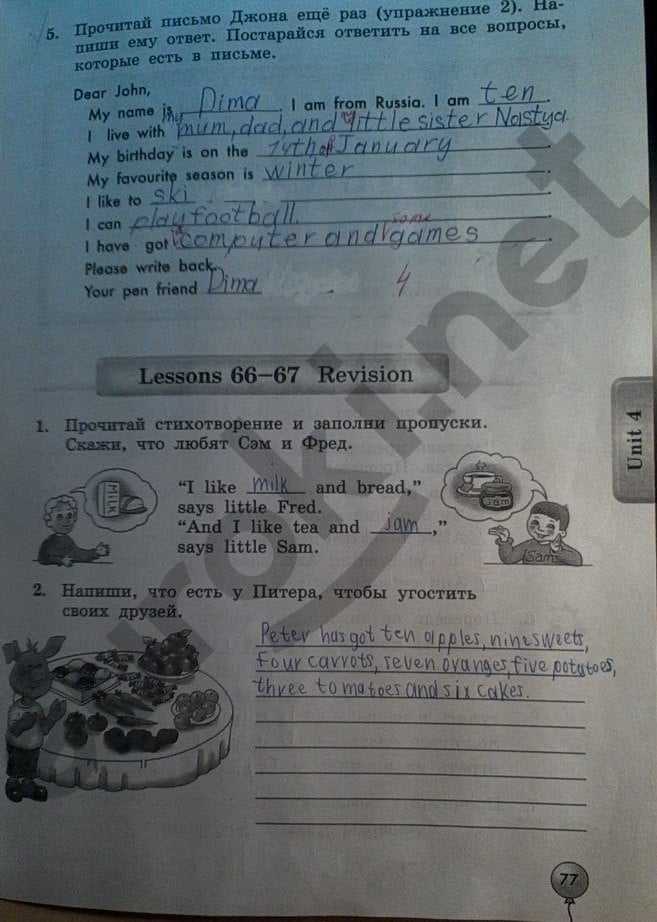 5. Прочитай письмо Джона ещё раз (упражнение 2). На-
пиши ему ответ. Постарайся ответить на все вопросы,
которые есть в письме.
Dear John,
My name is Dima. I am from Russia. I am ten.
I live with my mum, dad, and little sister Nastya.
My birthday is on the 14th of January.
My favourite season is winter.
I like to ski.
I can play football.
I have got a computer and some games.
Please write back.
Your pen friend Dima
4
Lessons 66–67 Revision
1. Прочитай стихотворение и заполни пропуски.
Скажи, что любят Сэм и Фред.
MILK
“I like milk and bread,”
says little Fred.
“And I like tea and jam,”
says little Sam.
Jam
Sam
Unit 4
2. Напиши, что есть у Питера, чтобы угостить
своих друзей.
Peter has got ten apples, nine sweets,
four carrots, seven oranges, five potatoes,
three tomatoes and six cakes.
77